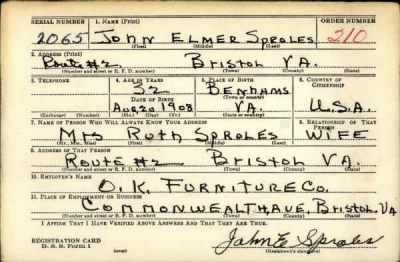 SERIAL NUMBER 1. NAME (Print) ORDER NUMBER
2065 JOHN ELMER SPROLES 210
(First) (Middle) (Last)
2. ADDRESS (Print)
ROUTE #2. BRISTOL VA.
(Number and street or R. F. D. number) (Town) (County) (State)
3. TELEPHONE 4. AGE IN YEARS 5. PLACE OF BIRTH 6. COUNTRY OF CITIZENSHIP
32 BENHAMS
DATE OF BIRTH (Town or county)
AUG. 20 1908 VA. U.S.A.
(Exchange) (Number) (Mo.) (Day) (Yr.) (State or country)
7. NAME OF PERSON WHO WILL ALWAYS KNOW YOUR ADDRESS 8. RELATIONSHIP OF THAT PERSON
MRS RUTH SPROLES WIFE
(Mr., Mrs., Miss) (First) (Middle) (Last)
9. ADDRESS OF THAT PERSON
ROUTE #2 BRISTOL VA.
(Number and street or R. F. D. number) (Town) (County) (State)
10. EMPLOYER'S NAME
O.K. FURNITURE CO.
11. PLACE OF EMPLOYMENT OR BUSINESS
COMMONWEALTH AVE, BRISTOL VA
(Number and street or R. F. D. number) (Town) (County) (State)
I AFFIRM THAT I HAVE VERIFIED ABOVE ANSWERS AND THAT THEY ARE TRUE.
REGISTRATION CARD
D. S. S. Form 1
John E Sproles
(Registrant's signature)